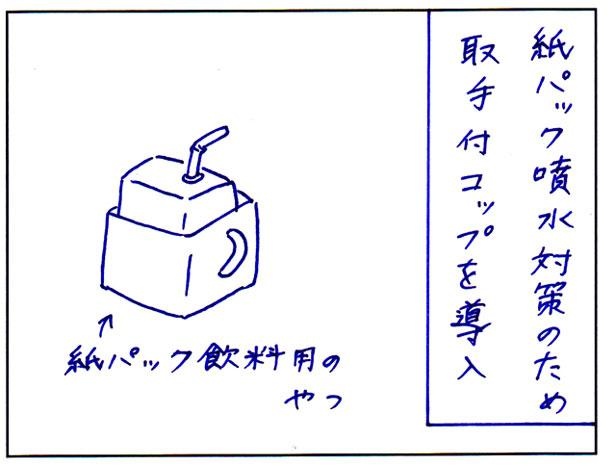 紙パック噴水対策のため
取手付コップを導入
↑
紙パック飲料用の
やつ